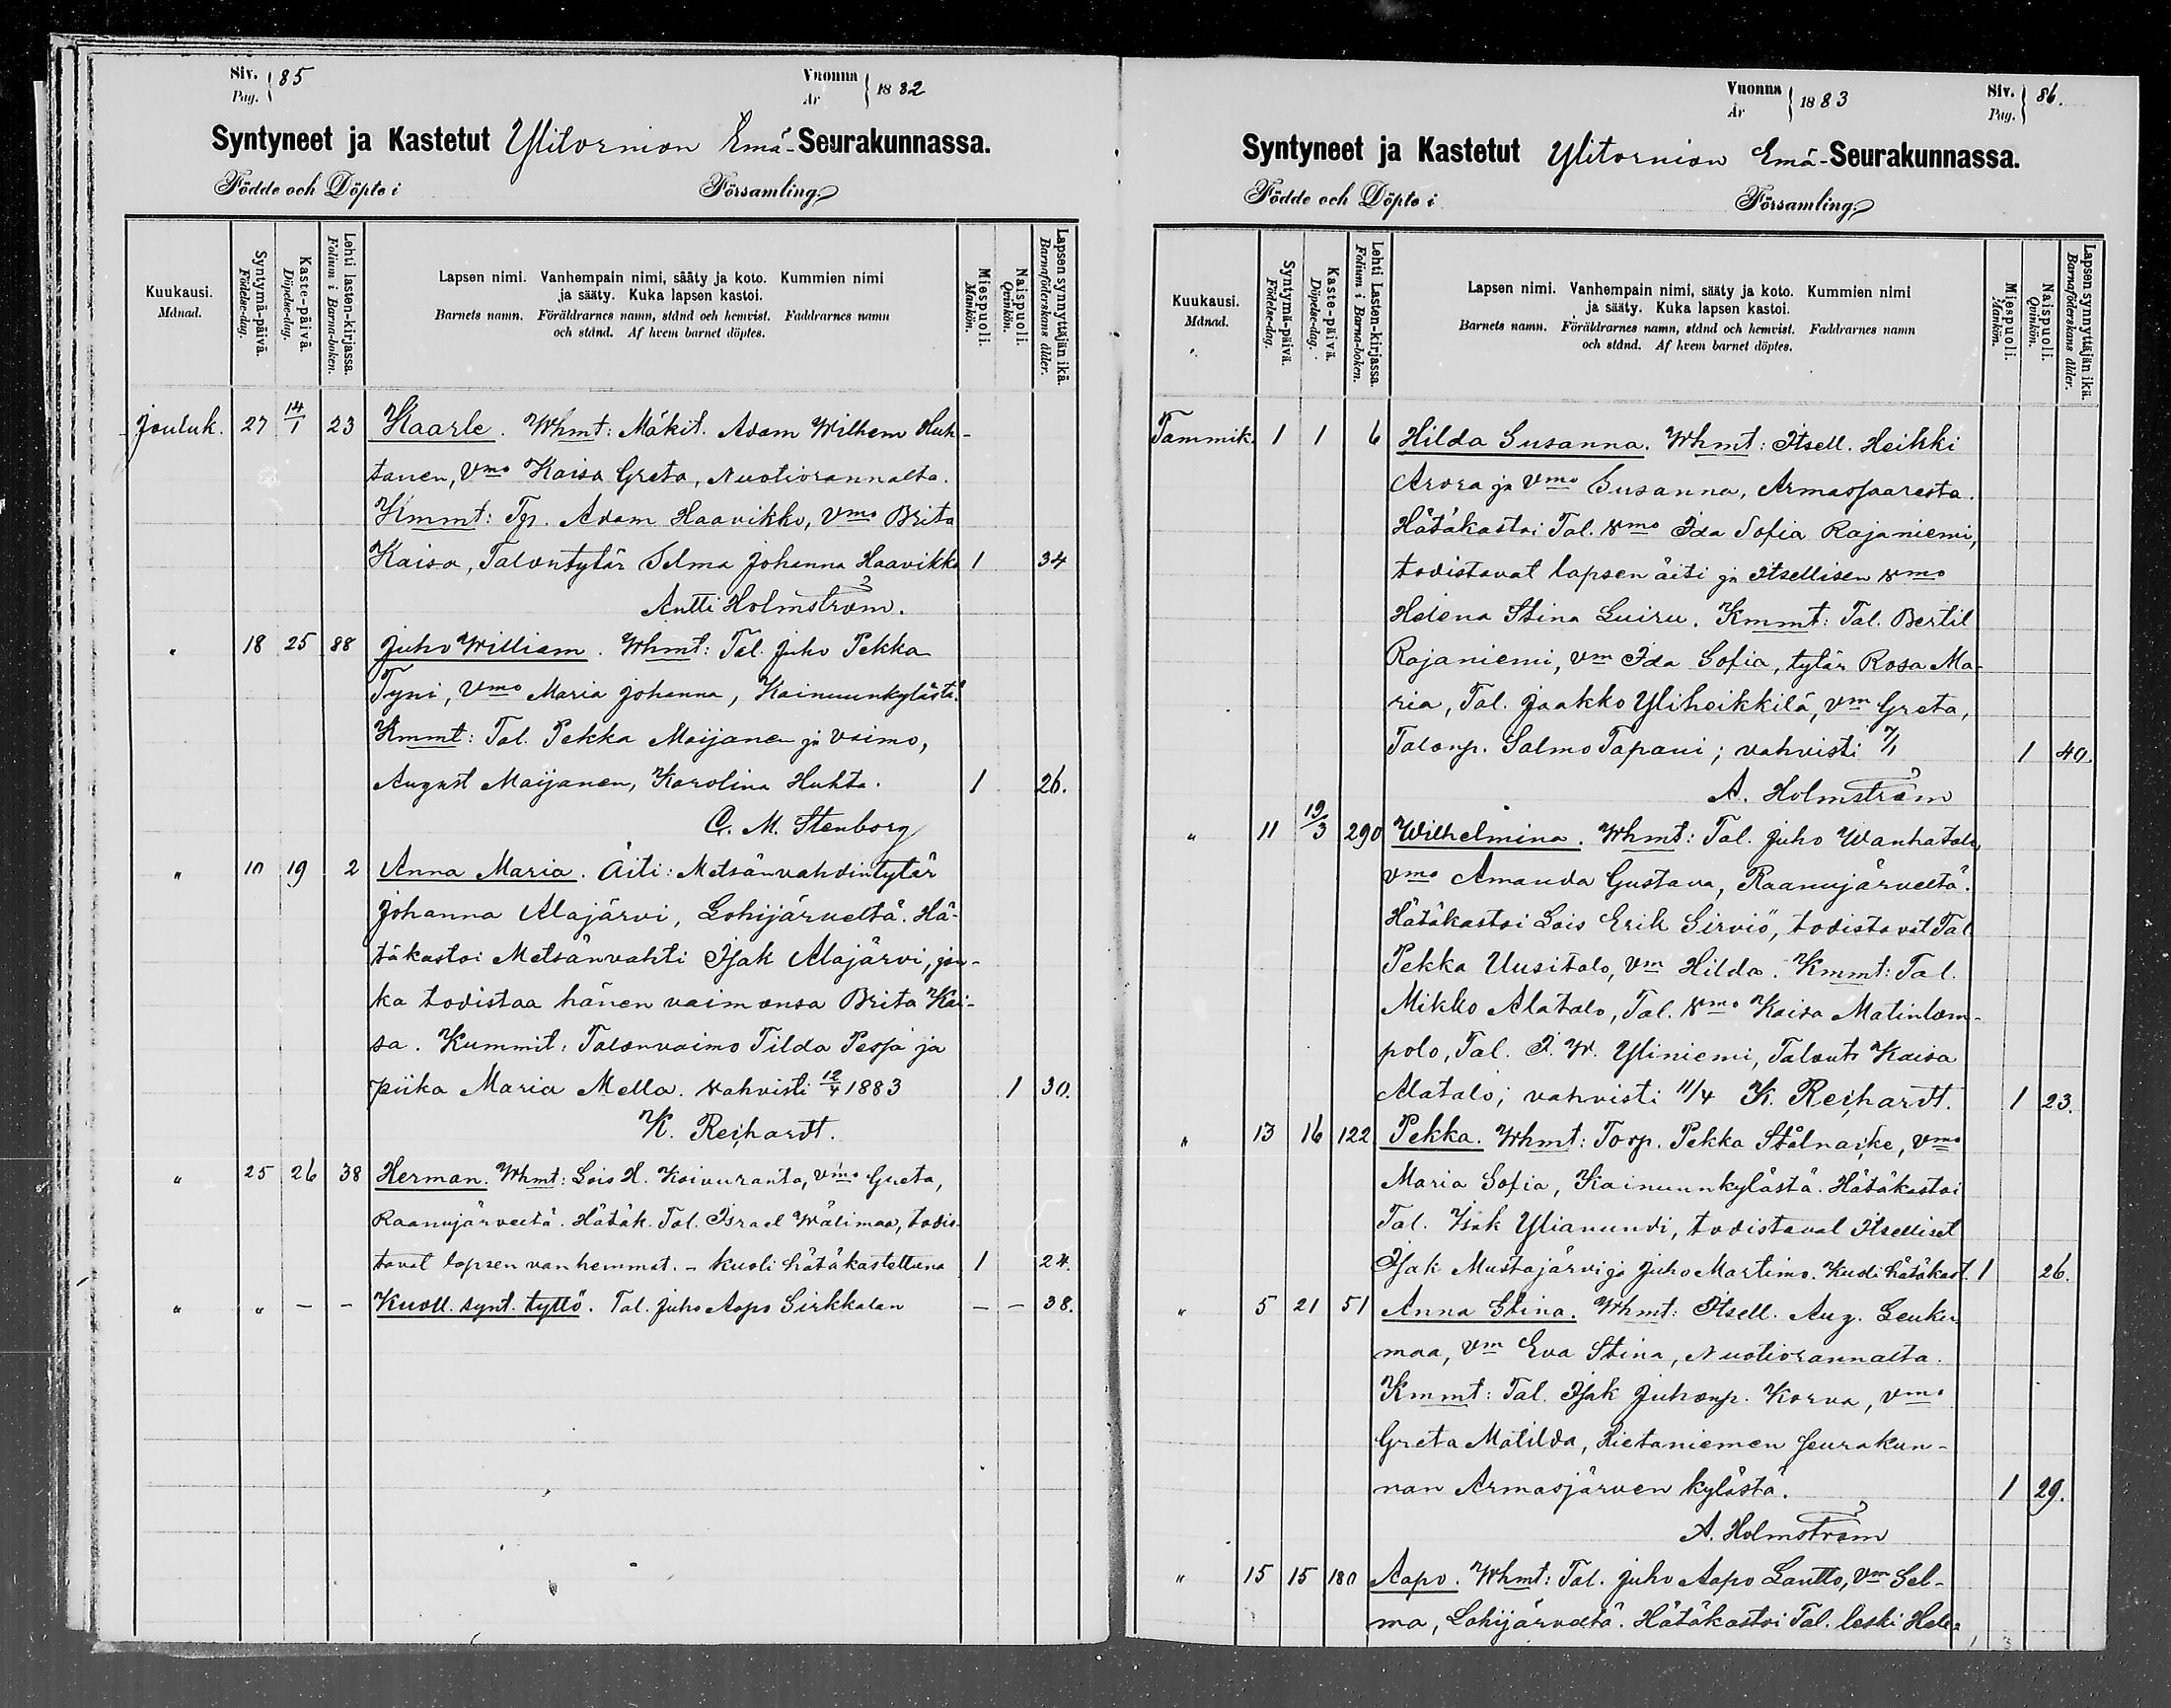 Siv. Pag. 85
Vuonna År 1882
Syntyneet ja Kastetut Ylitornion Emä-Seurakunnassa.
Födde och Döpte i Församling.
Kuukausi. Månad.
Syntymä-päivä. Födelse-dag.
Kaste-päivä. Döpelse-dag.
Lehti lasten-kirjassa. Folium i Barna-boken.
Lapsen nimi. Vanhempain nimi, sääty ja koto. Kummien nimi
ja sääty. Kuka lapsen kastoi.
Barnets namn. Föräldrarnes namn, stånd och hemvist. Faddrarnes namn
och stånd. Af hvem barnet döptes.
Miespuoli. Mankön.
Naispuoli. Qvinkön.
Lapsen synnyttäjän ikä. Barnaföderskans ålder.
Jouluk. 27 14/1 23 Kaarle. Whmt: Mäkit. Adam Wilhem Huh-
tanen, Vmo Kaisa Greta, Nuotiorannalta.
Kmmt: Tp. Adam Haavikko, Vmo Brita
Kaisa, Talontytär Selma Johanna Haavikko 1 34
Antti Holmström.
" 18 25 88 Juho William. Whmt: Tal. Juho Pekka
Tyni, Vmo Maria Johanna, Kainuunkylästä.
Kmmt: Tal. Pekka Maijanen ja vaimo,
August Maijanen, Karolina Huhta. 1 26.
C. M. Stenborg
" 10 19 2 Anna Maria. Äiti: Metsänvahdintytär
Johanna Alajärvi, Lohijärveltä. Hä-
täkastoi Metsänvahti Isak Alajärvi, jon-
ka todistaa hänen vaimonsa Brita Kai-
sa. Kummit: Talonvaimo Tilda Pessa ja
piika Maria Mella. vahvisti 12/4 1883 1 30.
K. Reihardt.
" 25 26 38 Herman. Whmt: Lois H. Koivuranta, Vmo Greta,
Raanujärveltä. Hätäk. Tal. Israel Wälimaa, todis-
tavat lapsen vanhemmat. - kuoli hätäkastettuna 1 24.
" " - - Kuoll. synt. tyttö. Tal. Juho Aapo Sirkkalan - - 38.
Vuonna År 1883
Siv. Pag. 86.
Syntyneet ja Kastetut Ylitornion Emä-Seurakunnassa.
Födde och Döpte i Församling.
Kuukausi. Månad.
Syntymä-päivä. Födelse-dag.
Kaste-päivä. Döpelse-dag.
Lehti Lasten-kirjassa. Folium i Barna-boken.
Lapsen nimi. Vanhempain nimi, sääty ja koto. Kummien nimi
ja sääty. Kuka lapsen kastoi.
Barnets namn. Föräldrarnes namn, stånd och hemvist. Faddrarnes namn
och stånd. Af hvem barnet döptes.
Miespuoli. Mankön.
Naispuoli. Qvinkön.
Lapsen synnyttäjän ikä. Barnaföderskans ålder.
Tammik. 1 1 6 Hilda Susanna. Whmt: Itsell. Heikki
Arvra ja Vmo Susanna, Armassaaresta.
Hätäkastoi Tal. vmo Ida Sofia Rajaniemi,
todistavat lapsen äiti ja Itsellisen vmo
Helena Stina Luiru. Kmmt: Tal. Bertil
Rajaniemi, vm Ida Sofia, tytär Rosa Ma-
ria, Tal. Jaakko Yliheikkilä, vm Greta,
Talonp. Salmo Tapani; vahvisti 7/1 1 40.
A. Holmström
" 11 19/3 290 Wilhelmina. Whmt: Tal. Juho Wanhatalo,
Vmo Amanda Gustava, Raanujärveltä.
Hätäkastoi Lois Erik Sirviö, todistavat Tal.
Pekka Uusitalo, vm Hilda. Kmmt: Tal.
Mikko Alatalo, Tal. vmo Kaisa Matinlom-
polo, Tal. I. W. Yliniemi, Talont. Kaisa
Alatalo; vahvisti 11/4 K. Reihardt. 1 23.
" 13 16 122 Pekka. Whmt: Torp. Pekka Stålnacke, Vmo
Maria Sofia, Kainuunkylästä. Hätäkastoi
Tal. Isak Ylianundi, todistavat Itselliset
Isak Mustajärvi ja Juho Martimo. Kuoli hätäkast. 1 26.
" 5 21 51 Anna Stina. Whmt: Itsell. Aug. Leuku
maa, Vm Eva Stina, Nuotiorannalta.
Kmmt: Tal. Isak Juhonp. Korva, Vmo
Greta Matilda, Hietaniemen seurakun-
nan Armasjärven kylästä. 1 29.
A. Holmström
" 15 15 180 Aapo. Whmt: Tal. Juho Aapo Lantto, Vm Sel-
ma, Lohijärveltä. Hätäkastoi Tal. leski Hele-